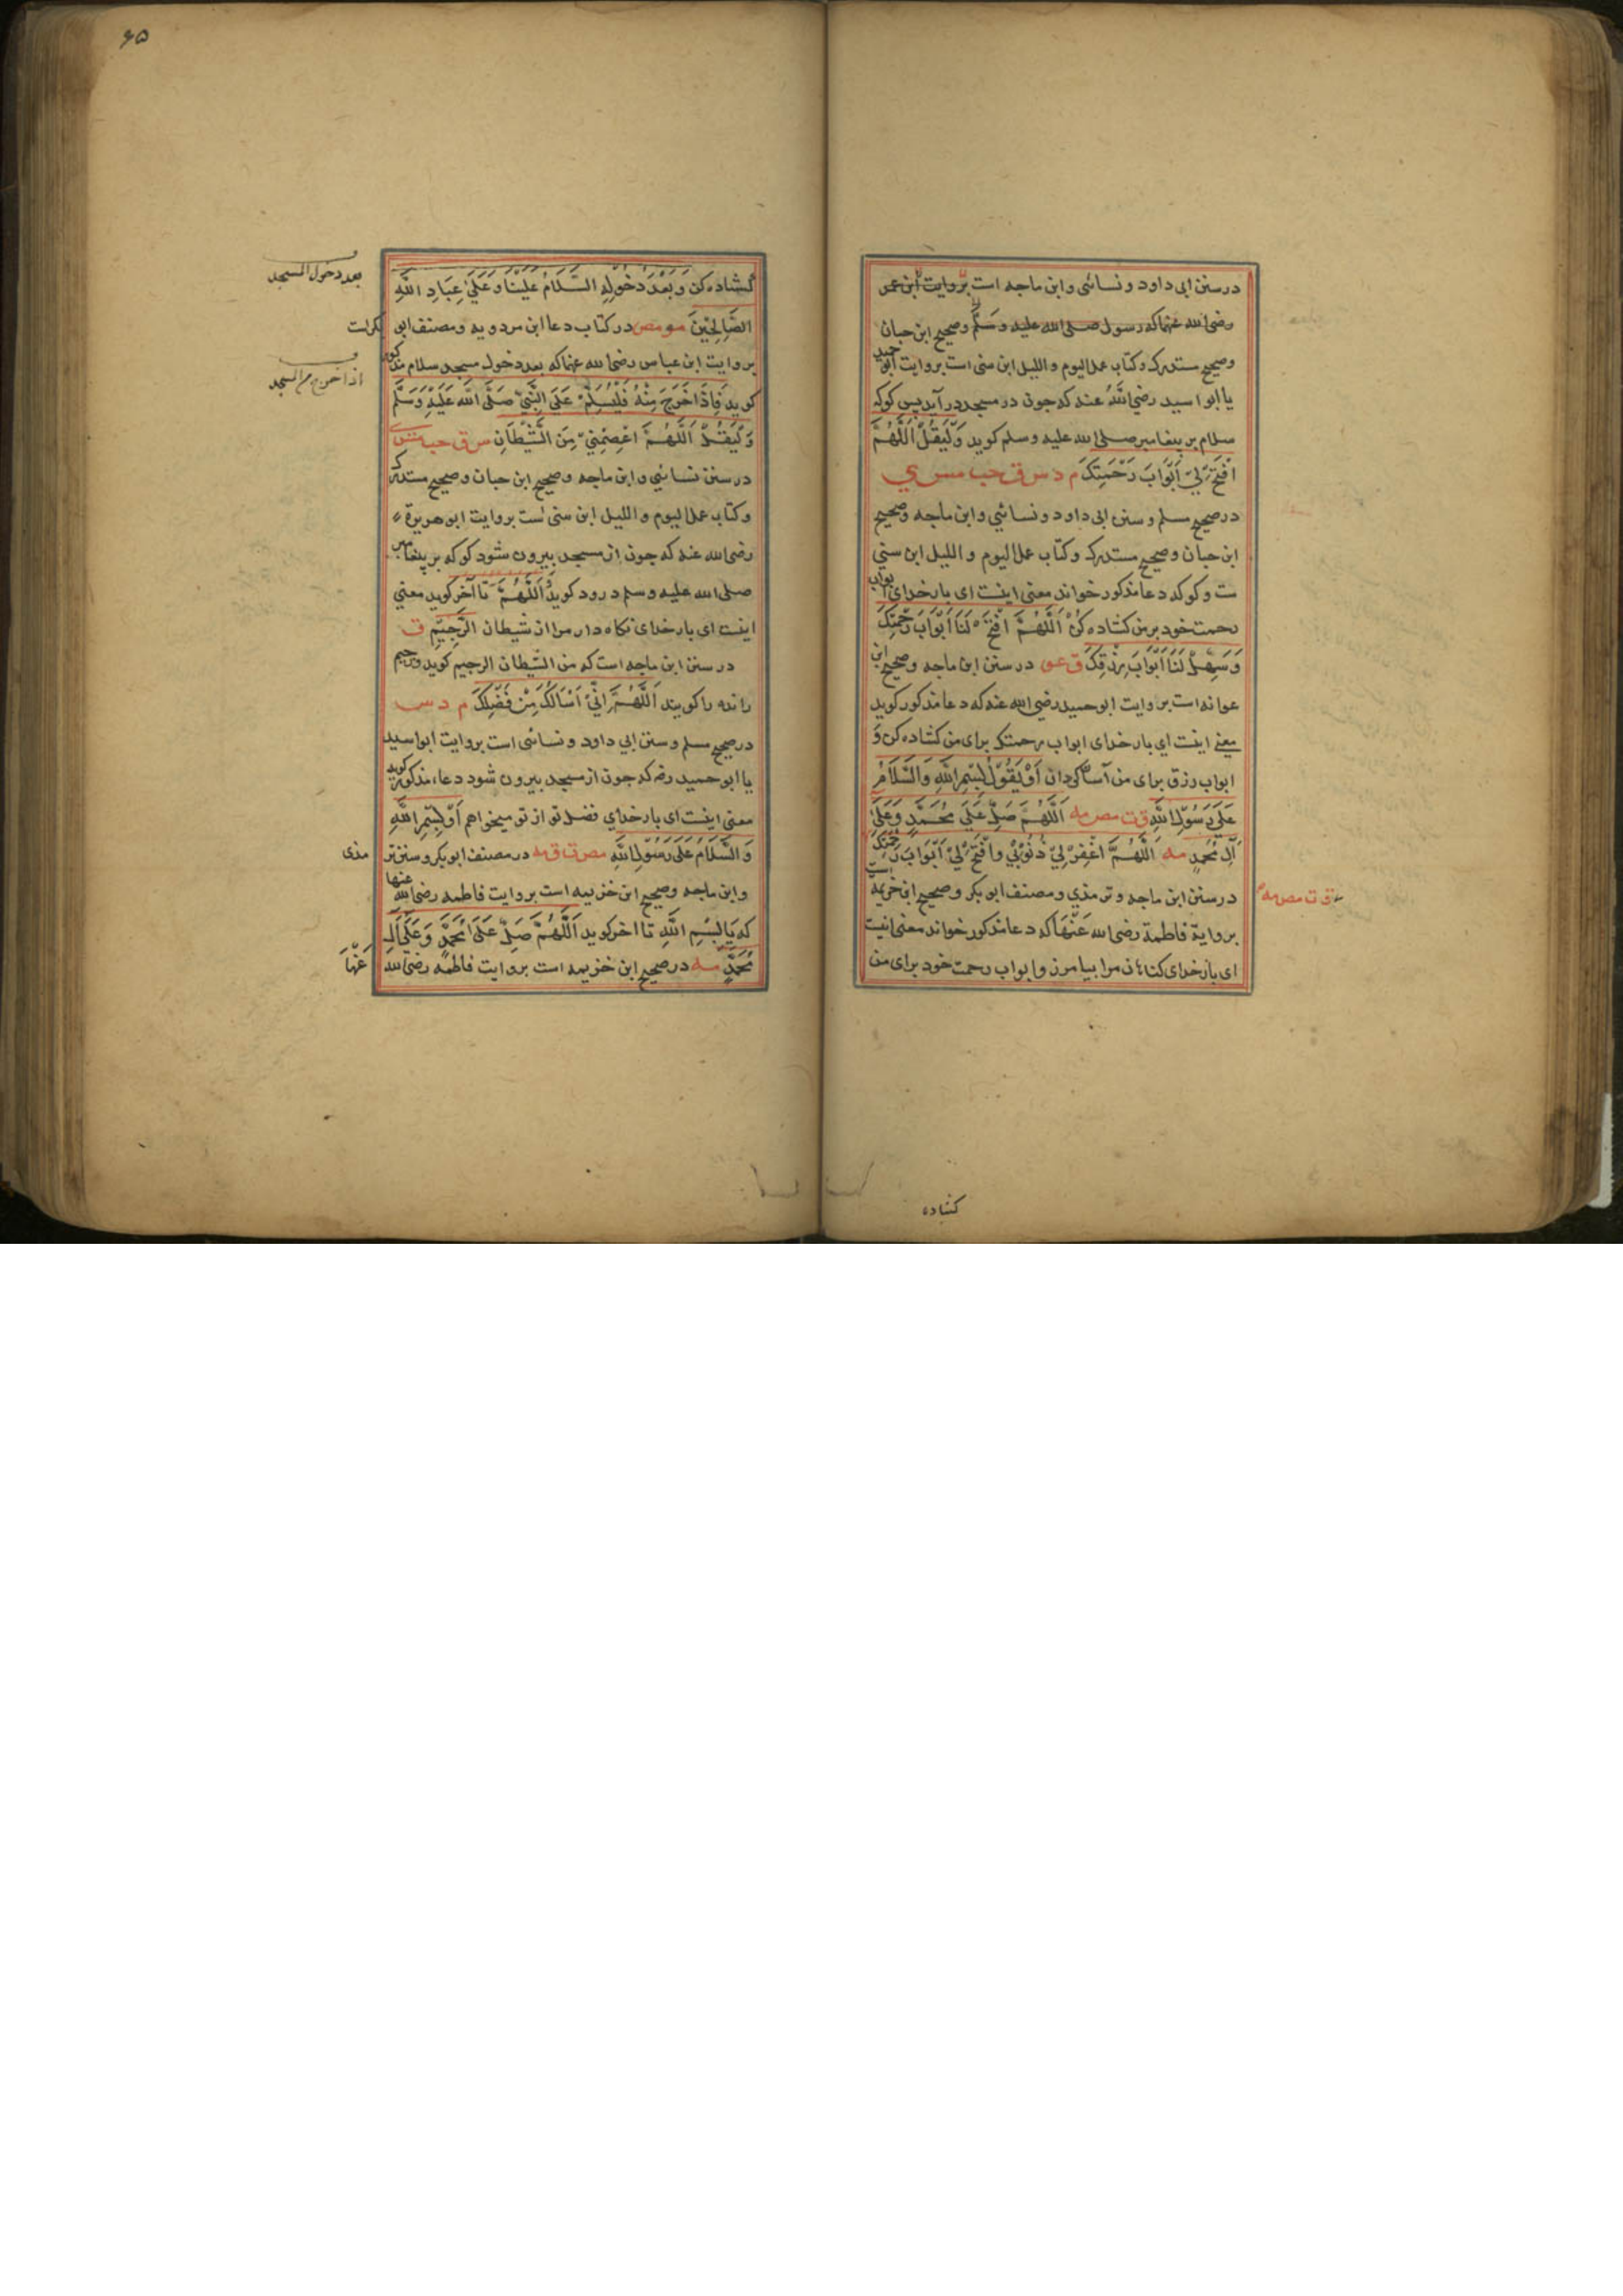 درسنن ابی داود و نسائی وابن ماجه است بروایت ابن عمر
رضی الله عنهما که رسول صلی الله علیه وسلم وصحیح ابن حبان
وصحیح مستدرک وکتاب عمل الیوم واللیل ابن سنی است بروایت ابو حمید
یا ابو اسید رضی الله عنه که جون در مسجد در آید پس کو که
سلام بر پیغامبر صلی الله علیه وسلم کوید وَلْیَقُلْ اَللّٰهُمَّ
افْتَحْ لِیْ اَبْوَابَ رَحْمَتِکَ م د س ق حب مس ی
درصحیح مسلم وسنن ابی داود ونسائی وابن ماجه وصحیح
ابن حبان وصحیح مستدرک وکتاب عمل الیوم واللیل ابن سنی
ست وکو که دعا مذکور خواند معنی اینست ای بار خدای ابواب
رحمت خود بر من کشاده کن اَللّٰهُمَّ افْتَحْ لَنَا اَبْوَابَ رَحْمَتِکَ
وَسَهِّلْ لَنَا اَبْوَابَ رِزْقِکَ ق عو در سنن ابن ماجه وصحیح ابن
عوانه است بروایت ابو حمید رضی الله عنه که دعا مذکور کوید
یعنی اینست ای بار خدای ابواب رحمتک برای من کشاده کن وَ
ابواب رزق برای من آسان کردان اَوْ یَقُوْلُ بِسْمِ اللّٰهِ وَالسَّلَامُ
عَلٰی رَسُوْلِ اللّٰهِ ق ت مص مه اَللّٰهُمَّ صَلِّ عَلٰی مُحَمَّدٍ وَعَلٰی
آلِ مُحَمَّدٍ مه اَللّٰهُمَّ اغْفِرْ لِیْ ذُنُوْبِیْ وَافْتَحْ لِیْ اَبْوَابَ رَحْمَتِکَ
ق ت مص مه
درسنن ابن ماجه وترمذی ومصنف ابو بکر وصحیح ابن خزیمه است
بروایة فاطمة رضی الله عنها که دعا مذکور خواند معنی اینست
ای بار خدای کناهان مرا بیامرز وابواب رحمت خود برای من
کشاده
۶۵
کشاده کن وَبَعْدَ دُخُوْلِهِ السَّلَامُ عَلَیْنَا وَعَلٰی عِبَادِ اللّٰهِ
بعد دخول المسجد
الصَّالِحِیْنَ مو مص در کتاب دعا ابن مردویه ومصنف ابی بکر است
بروایت ابن عباس رضی الله عنهما که بعد دخول مسجد سلام مذکور
اذا خرج من المسجد
کوید فَاِذَا خَرَجَ مِنْهُ فَلْیُسَلِّمْ عَلَی النَّبِیِّ صَلَّی اللّٰهُ عَلَیْهِ وَسَلَّمَ
وَلْیَقُلْ اَللّٰهُمَّ اعْصِمْنِیْ مِنَ الشَّیْطَانِ س ق حب مس ی
در سنن نسائی وابن ماجه وصحیح ابن حبان وصحیح مستدرک
وکتاب عمل الیوم واللیل ابن سنی است بروایت ابو هریرة
رضی الله عنه که چون از مسجد بیرون شود کو که بر پیغامبر
صلی الله علیه وسلم درود کوید اَللّٰهُمَّ تا آخر کوید معنی
اینست ای بار خدای نکاه دار مرا از شیطان الرَّجِیْمِ ق
در سنن ابن ماجه است که من الشیطان الرجیم کوید ورجیم
رانده را کویند اَللّٰهُمَّ اِنِّیْ اَسْاَلُکَ مِنْ فَضْلِکَ م د س
درصحیح مسلم وسنن ابی داود ونسائی است بروایت ابو اسید
یا ابو حمید رضه که جون از مسجد بیرون شود دعاء مذکور کوید
معنی اینست ای بار خدای فضل تو از تو میخواهم اَوْ بِسْمِ اللّٰهِ
وَالسَّلَامُ عَلٰی رَسُوْلِ اللّٰهِ مص ت ق مه در مصنف ابو بکر وسنن ترمذی
وابن ماجه وصحیح ابن خزیمه است بروایت فاطمه رضی الله عنها
که یا بِسْمِ اللّٰهِ تا اخر کوید اَللّٰهُمَّ صَلِّ عَلٰی مُحَمَّدٍ وَعَلٰی آلِ
مُحَمَّدٍ مه درصحیح ابن خزیمه است بروایت فاطمه رضی الله عَنْهَا